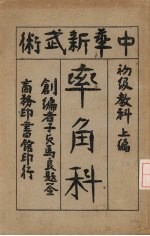 中華新武術
初級教科 上編
率角科
創編者子貞馬良題簽
商務印書館印行